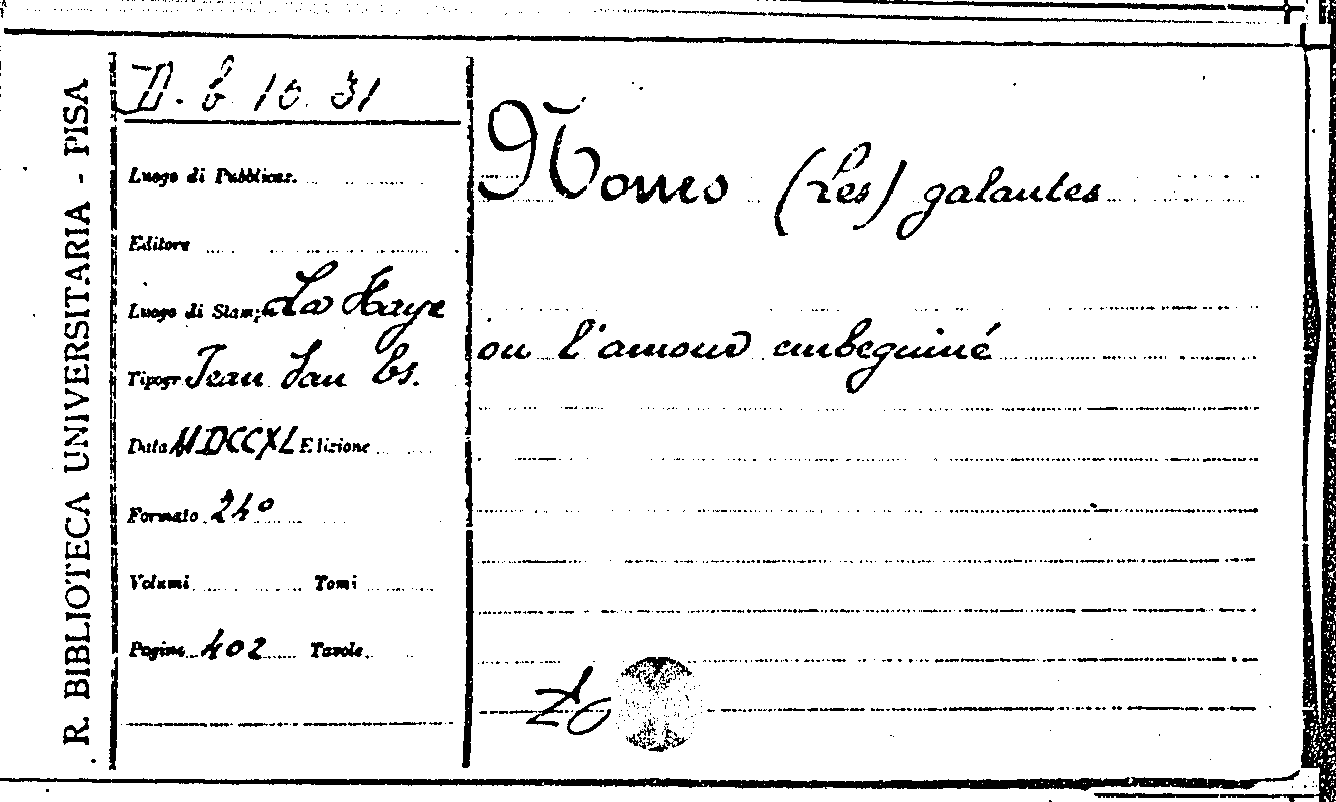 R. BIBLIOTECA UNIVERSITARIA - PISA
D. b 10. 31
Luogo di Pubblicaz.
Editore
Luogo di Stampa La Haye
Tipogr Jean Van Es.
Data MDCCXL Edizione
Formato 24°
Volumi Tomi
Pagine 402 Tavole
Nones (Les) galantes
ou l'amour embeguiné